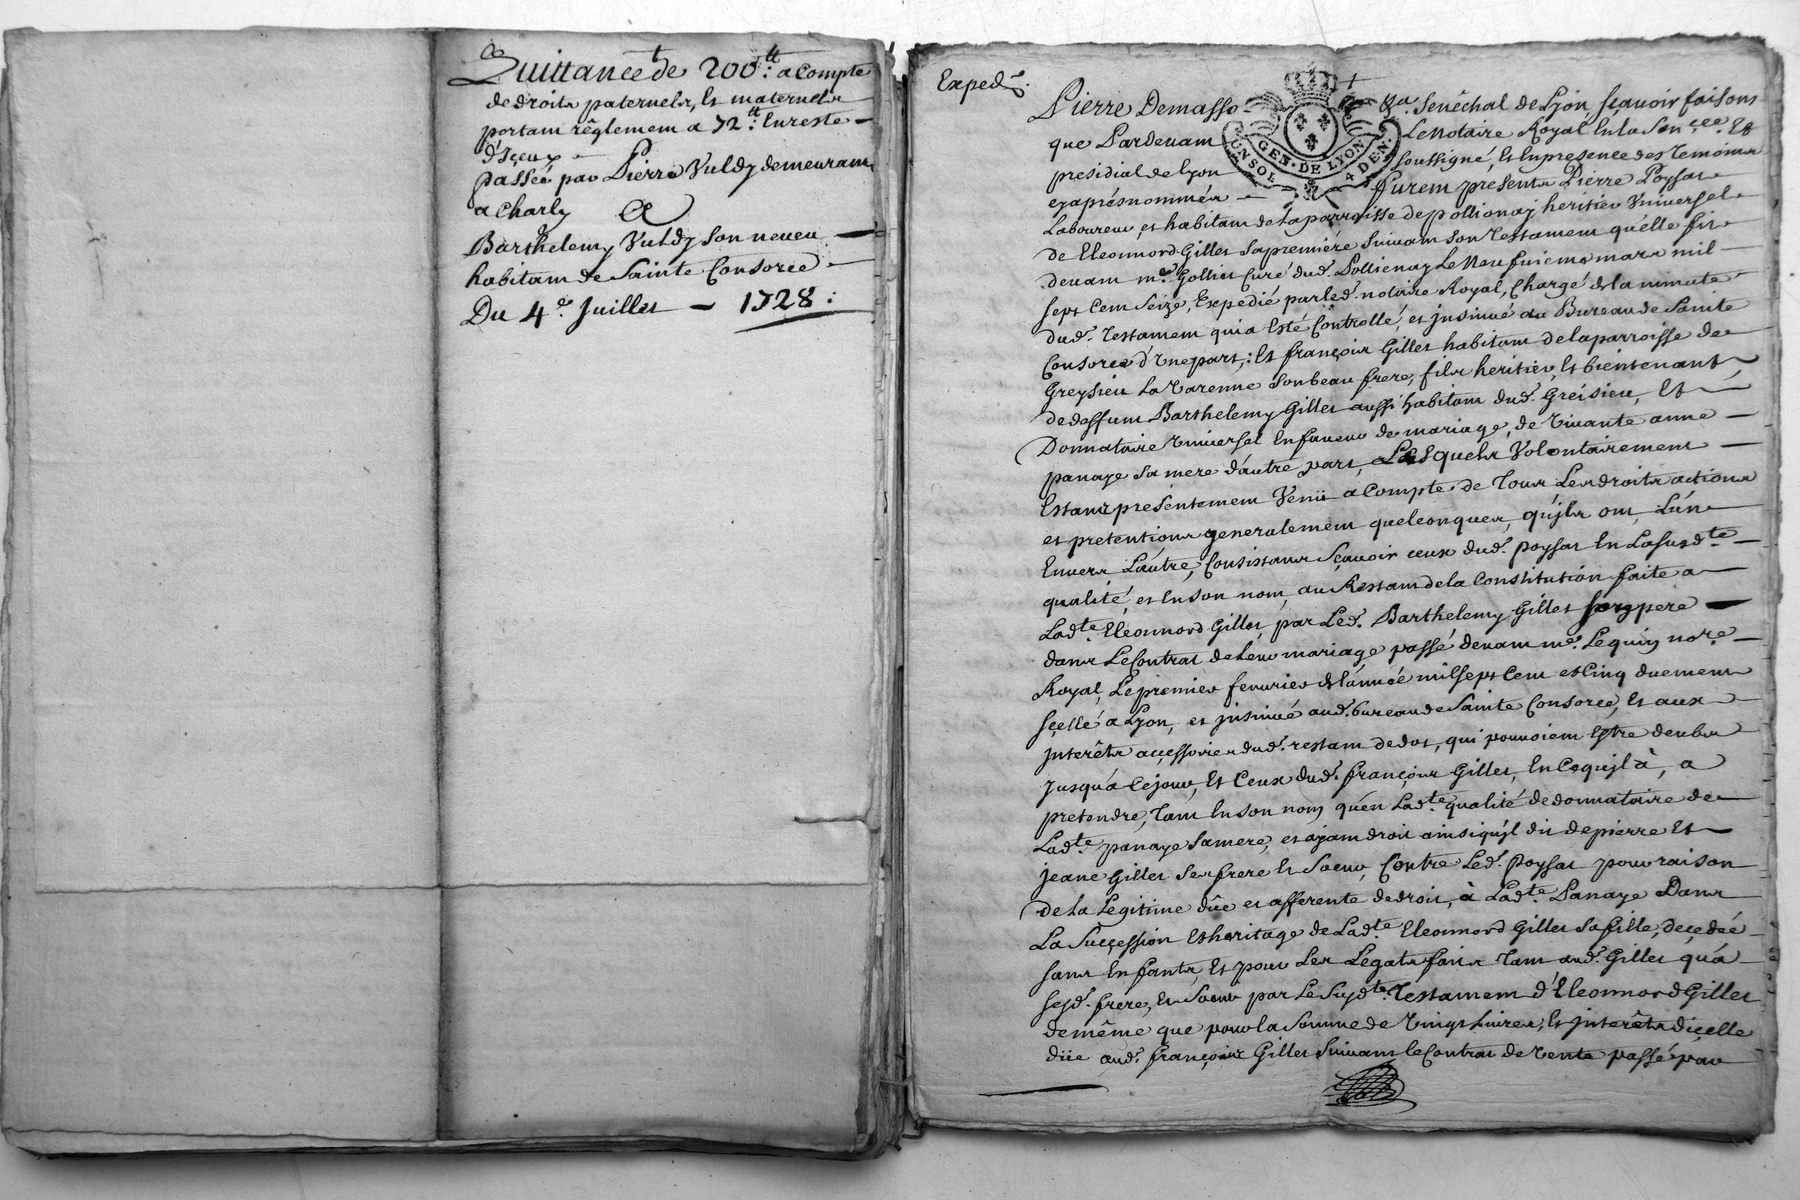 Quittance de 200ᵗᵗ: a Compte
de droits paternels, Et maternels
portant rêglement a 72ᵗᵗ: En reste
d'Içeux
passée par Pierre Vuldy demeurant
a Charly A
Barthelemy Vuldy son neveu
habitant de Sainte Consorce
Du 4ᵉ Juillet 1728:
Exped.
Pierre Demasso Sénêchal de Lyon sçavoir faisons
que Pardevant Le Notaire Royal En la Sénᶜᵉᵉ. Et
presidial de Lyon soussigné, Et En presence des Temoins
cy aprés nommés furent presents Pierre Poysat
GEN. DE LYON
UN SOL 4 DEN.
Laboureur, et habitant de la parroisse de pollionaÿ heritier Universel
de Eleonnord Gillet sa premiére suivant son Testament qu'elle fit
devant mᵉ. Golliet Curé dud. Pollienay Le Neufuiéme mars mil
sept Cent Seize, Expedié par led. notaire Royal, Chargé de la minute
dud. Testament qui a Esté Controllé, et jnsinué au Bureau de Sainte
Consorce d'Une part; Et françois Gillet habitant de la parroisse de
Greysieu La Varenne son beau frere, fils heritier, Et bientenant
de deffunt Barthelemy Gillet aussi habitant dud. Greisieu, Et
Donnataire Universel En faveur de mariage, de Vivante anne
panaye sa mere d'autre part, Lesquels Volontairement
Estants presentement Venü a Compte de Tous Les droits actions
et pretentions generalement quelconques, qu'jls ont L'un
Envers L'autre, Consistants sçavoir ceux dud. poysat En La susdᵗᵉ
qualité, et En son nom, au Restant de la Constitution faite a
Ladᵗᵉ Eleonnord Gillet, par Led. Barthelemy Gillet son pere
dans Le Contrat de Leur mariage passé devant mᵉ. Lequin noʳᵉ
Royal, Le premier fevrier de L'année mil sept Cent et Cinq duement
sçellé a Lyon, et jnsinué aud. bureau de Sainte Consorce, Et aux
jnterêts açcessoires dud. restant de dot, qui pouvoient Estre deubs
jusqu'a Ce jour, Et Ceux dud. françois Gillet, En Ce qu'jl à, a
pretendre, Tant En son nom qu'en Ladᵗᵉ qualité de donnataire de
Ladᵗᵉ panaye sa mere, et ajant droit ainsi qu'jl dit de pierre Et
jeane Gillet ses frere Et Soeur, Contre Led. Poysat pour raison
de la Legitime düe et afferente de droit, à Ladᵗᵉ Panaye Dans
La Sucçession Et heritage de Ladᵗᵉ Eleonnord Gillet sa fille, deçedéé
sans Enfants, Et pour Les Legats faits Tant aud. Gillet qu'á
sesd. frere, Et Soeur par Le Susdᵗ Testament d'Eleonnord Gillet
de même que pour la Somme de Vingt Livres, Et jnterêts d'içelle
düe aud. françois Gillet Suivant le Contrat de Vente passé par